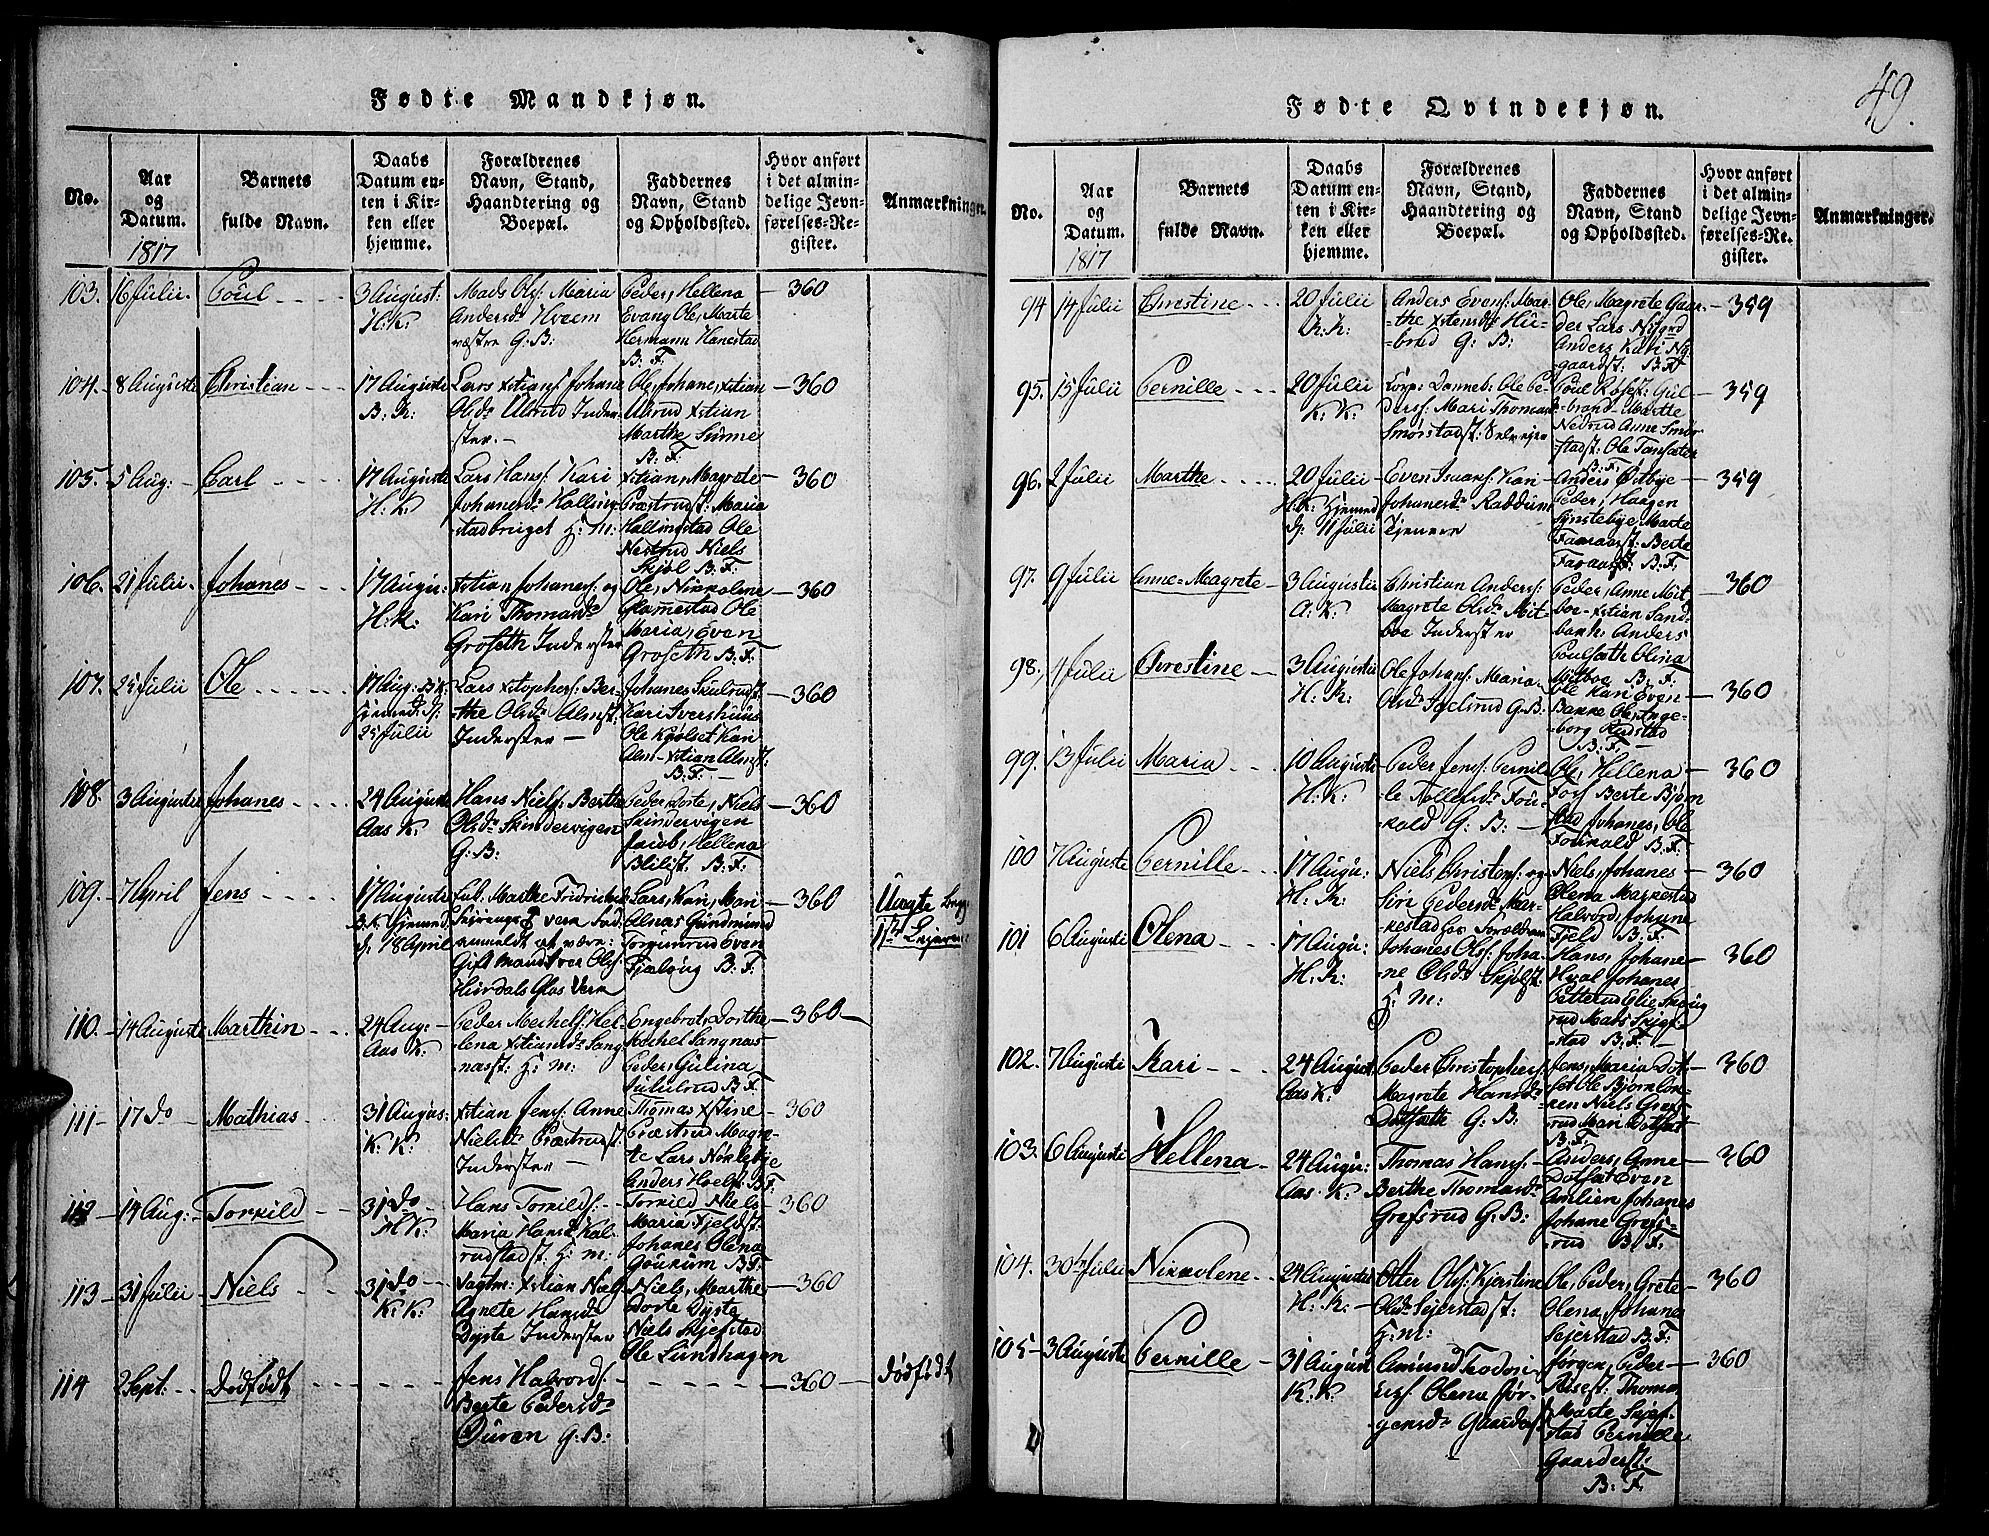 Fødte Mandkjøn.
No.
Aar
og
Datum.
1817
Barnets
fulde Navn.
Daabs
Datum en-
ten i Kir-
ken eller
hjemme.
Forældrenes
Navn, Stand,
Haandtering og
Boepæl.
Faddernes
Navn, Stand
og Opholdssted.
Hvor anført
i det almin-
delige Jevn-
førelses-Re-
gister.
Anmærkninger.
103. 16 Julii. Poul
3 August:
H: K:
Mads Ols: Maria
Andersd. Hveem
væstre G: B:
Peder, Hellena
Evang Ole, Marte
Hermann Hanestad
B: F:
360
104. 8 Auguste Christian
17 Auguste
B: K:
Lars Xtians: Johane
Olsd. Alsrud Inder-
ster.
Ole, Johane, Xtian
Alsrud Xtian
Marthe Sinne
B: F:
360
105. 5 Aug: Carl
17 Auguste
H: K:
Lars Hans: Kari
Johanesd.
stadbruget H: M:
Xtian, Magrete
Præstrudst: Maria
Hallingstad Ole
Nestrud Niels
Skjøl B: F:
360
106. 21 Julii Johanes
17 Augu:
H: K:
Xtian Johanes: og
Kari Thomasd.
Groseth Inderster
Ole, Nikkoline
Glamestad Ole
Maria, Even
Groseth B: F:
360
107. 25 Julii Ole
17 Aug: B: K:
hjemed. d:
25 Julii
Lars Xtophers: Ber-
the Olsd. Almst:
Inderster
Johanes Skulrudst:
Kari Ivershuus
Ole Kjølset Kari
Alm Xtian Almst:
B: F:
360
108. 3 Auguste Johanes
24 Auguste
Aas K:
Hans Niels: Berthe
Olsd. Skindervigen
G: B:
Peder Dorte, Niels
Skindervigen
Jacob, Hellena
Blilist. B: F:
360
109. 7 April Jens
17 Auguste
B: K: hjemed
d. 18 April
Marthe Fridrichsd.
anmeldt at være:
Gift Mand Iver Ols:
Hurdals Glas Værk
Lars, Kari, Mari
Alnæs Gundmund
Torgunrud Even
Fjælbug B: F:
360
Uægte
110. 14 Auguste Marthin
24 Aug:
Aas K:
Peder Mechels: Hel-
lena Xtiansd. Sang
næsst: H: M:
Engebret, Dorthe
Mechel Sangnæs
Peder, Gulina
Jululsrud B: F:
360
111 17 do Mathias
31 Augus:
K: K:
Xtian Jens: Anne
Nielsd. Præstrudst:
Inderster
Thomas Xstine
Præstrud Magre-
te Lars Nøklebye
Anders Hoels: B: F:
360
112 14 Aug: Torkild
31 do
H: K:
Hans Torkilds:
Maria Hansd. Kal-
rudstadst. H: M:
Torkild Niels
Maria Fjeldst:
Johanes Olena
Goukum B: F:
360
113 31 Julii Niels
31 do
K: K:
Xtian Niels
Agnete Hansd.
Dyste Inderster
Niels, Marthe
Dorte Dyste
Niels Skjefstad
Ole Lundshagen
360
114 2 Sept: Dødfødt
Jens Halvords:
Berte Pedersd.
Duren G: B:
360
Dødfødt
49.
Fødte Qvindekjøn.
No.
Aar
og
Datum.
1817
Barnets
fulde Navn.
Daabs
Datum en-
ten i Kir-
ken eller
hjemme.
Forældrenes
Navn, Stand,
Haandtering og
Boepæl.
Faddernes
Navn, Stand
og Opholdssted.
Hvor anført
i det almin-
delige Jevn-
førelses-Re-
gister.
Anmærkninger.
94 14 Julii Chrestine
20 Julii
K: K:
Anders Evens: Mar-
the Xtensd. Hu-
brud G: B:
Ole, Magrete Gaar-
der Lars Nygrd
Anders Kari Ny-
gaardst: B: F:
359
95. 15 Julii Pernille
20 Julii
K: K:
Corp: Danneb: Ole Pe-
ders: Mari Thomasd.
Smørstadst: Selvejer
Poul Røsest: Gul-
brand Marthe
Nedrud Anne Smør-
stadst: Ole Tansæter
B: F:
359
96. 2 Julii Marthe
20 Julii
H: K: hjemed
d. 11 Julii
Even Isaks: Kari
Johanesd. Raddum
Tjenere
Anders Østbye
Peder, Haagen
Synstebye, Marte
Faaraast: Berte
Faraast: B: F:
359
97. 9 Julii Anne-Magrete
3 Auguste
A: K:
Christian Anders:
Magrete Olsd. Mit-
boe Inderster
Peder, Anne Mit-
boe Xtian Sand-
bank, Anders
Poulsæth Olina
Mitboe B: F:
360
98. 4 Julii Chrestine
3 Auguste
H: K:
Ole Johans: Maria
Olsd. Igelsrud G: B:
Ole Kari Even
Banke Ole, Inge-
borg Rudstad
B: F:
360
99. 13 Julii Maria
10 Auguste
H: K:
Peder Jens: Pernil-
le Tollefsd. Fou-
kald G: B:
Ole, Hellena
Fors Berte Bjørn
stad Johanes, Ole
Foukald B: F:
360
100 7 Auguste Pernille
17 Augu:
H: K:
Niels Christens: og
Siri Pedersd. Mær-
kestad hos Forældrene
Niels, Johanes
Olena Markestad
Halvord, Johane
Fjeld B: F:
360
101 6 Auguste Olena
17 Augu:
H: K:
Johanes Ols: Joha-
ne Olsd. Skjølst:
H: M:
Hans, Johane
Hval Johanes
Petterud Elie Skoug
rud Mads Skjef-
stad B: F:
360
102. 7 Auguste Kari
24 August
Aas K:
Peder Christophers:
Magrete Hansd.
Dotsæth G: B:
Jens, Maria Dot-
set Ole Bjørnlin-
ken Niels Grefs-
rud Mari Dotsæt
B: F:
360
103. 6 Auguste Hellena
24 Augu:
Aas: K:
Thomas Hans:
Berthe Thomasd.
Grefsrud G: B:
Anders, Anne
Dotsæt Even
Amlien Johanes
Johane Grefs-
rud B: F:
360
104. 30te Julii Nikkolene
24 Auguste
H: K:
Otter Ols: Kjerstine
Olsd. Sejerstadst:
H: M:
Ole, Peder, Grete
Olena, Johanes
Sejerstad B: F:
360
105 3 Auguste Pernille
31 August
K: K:
Amund Trodori-
Olena Jør-
gensd. Gaarders
Jørgen, Peder
Risest: Thomas
Marte Skjef-
stad Pernille
Gaarderst:
B: F:
360